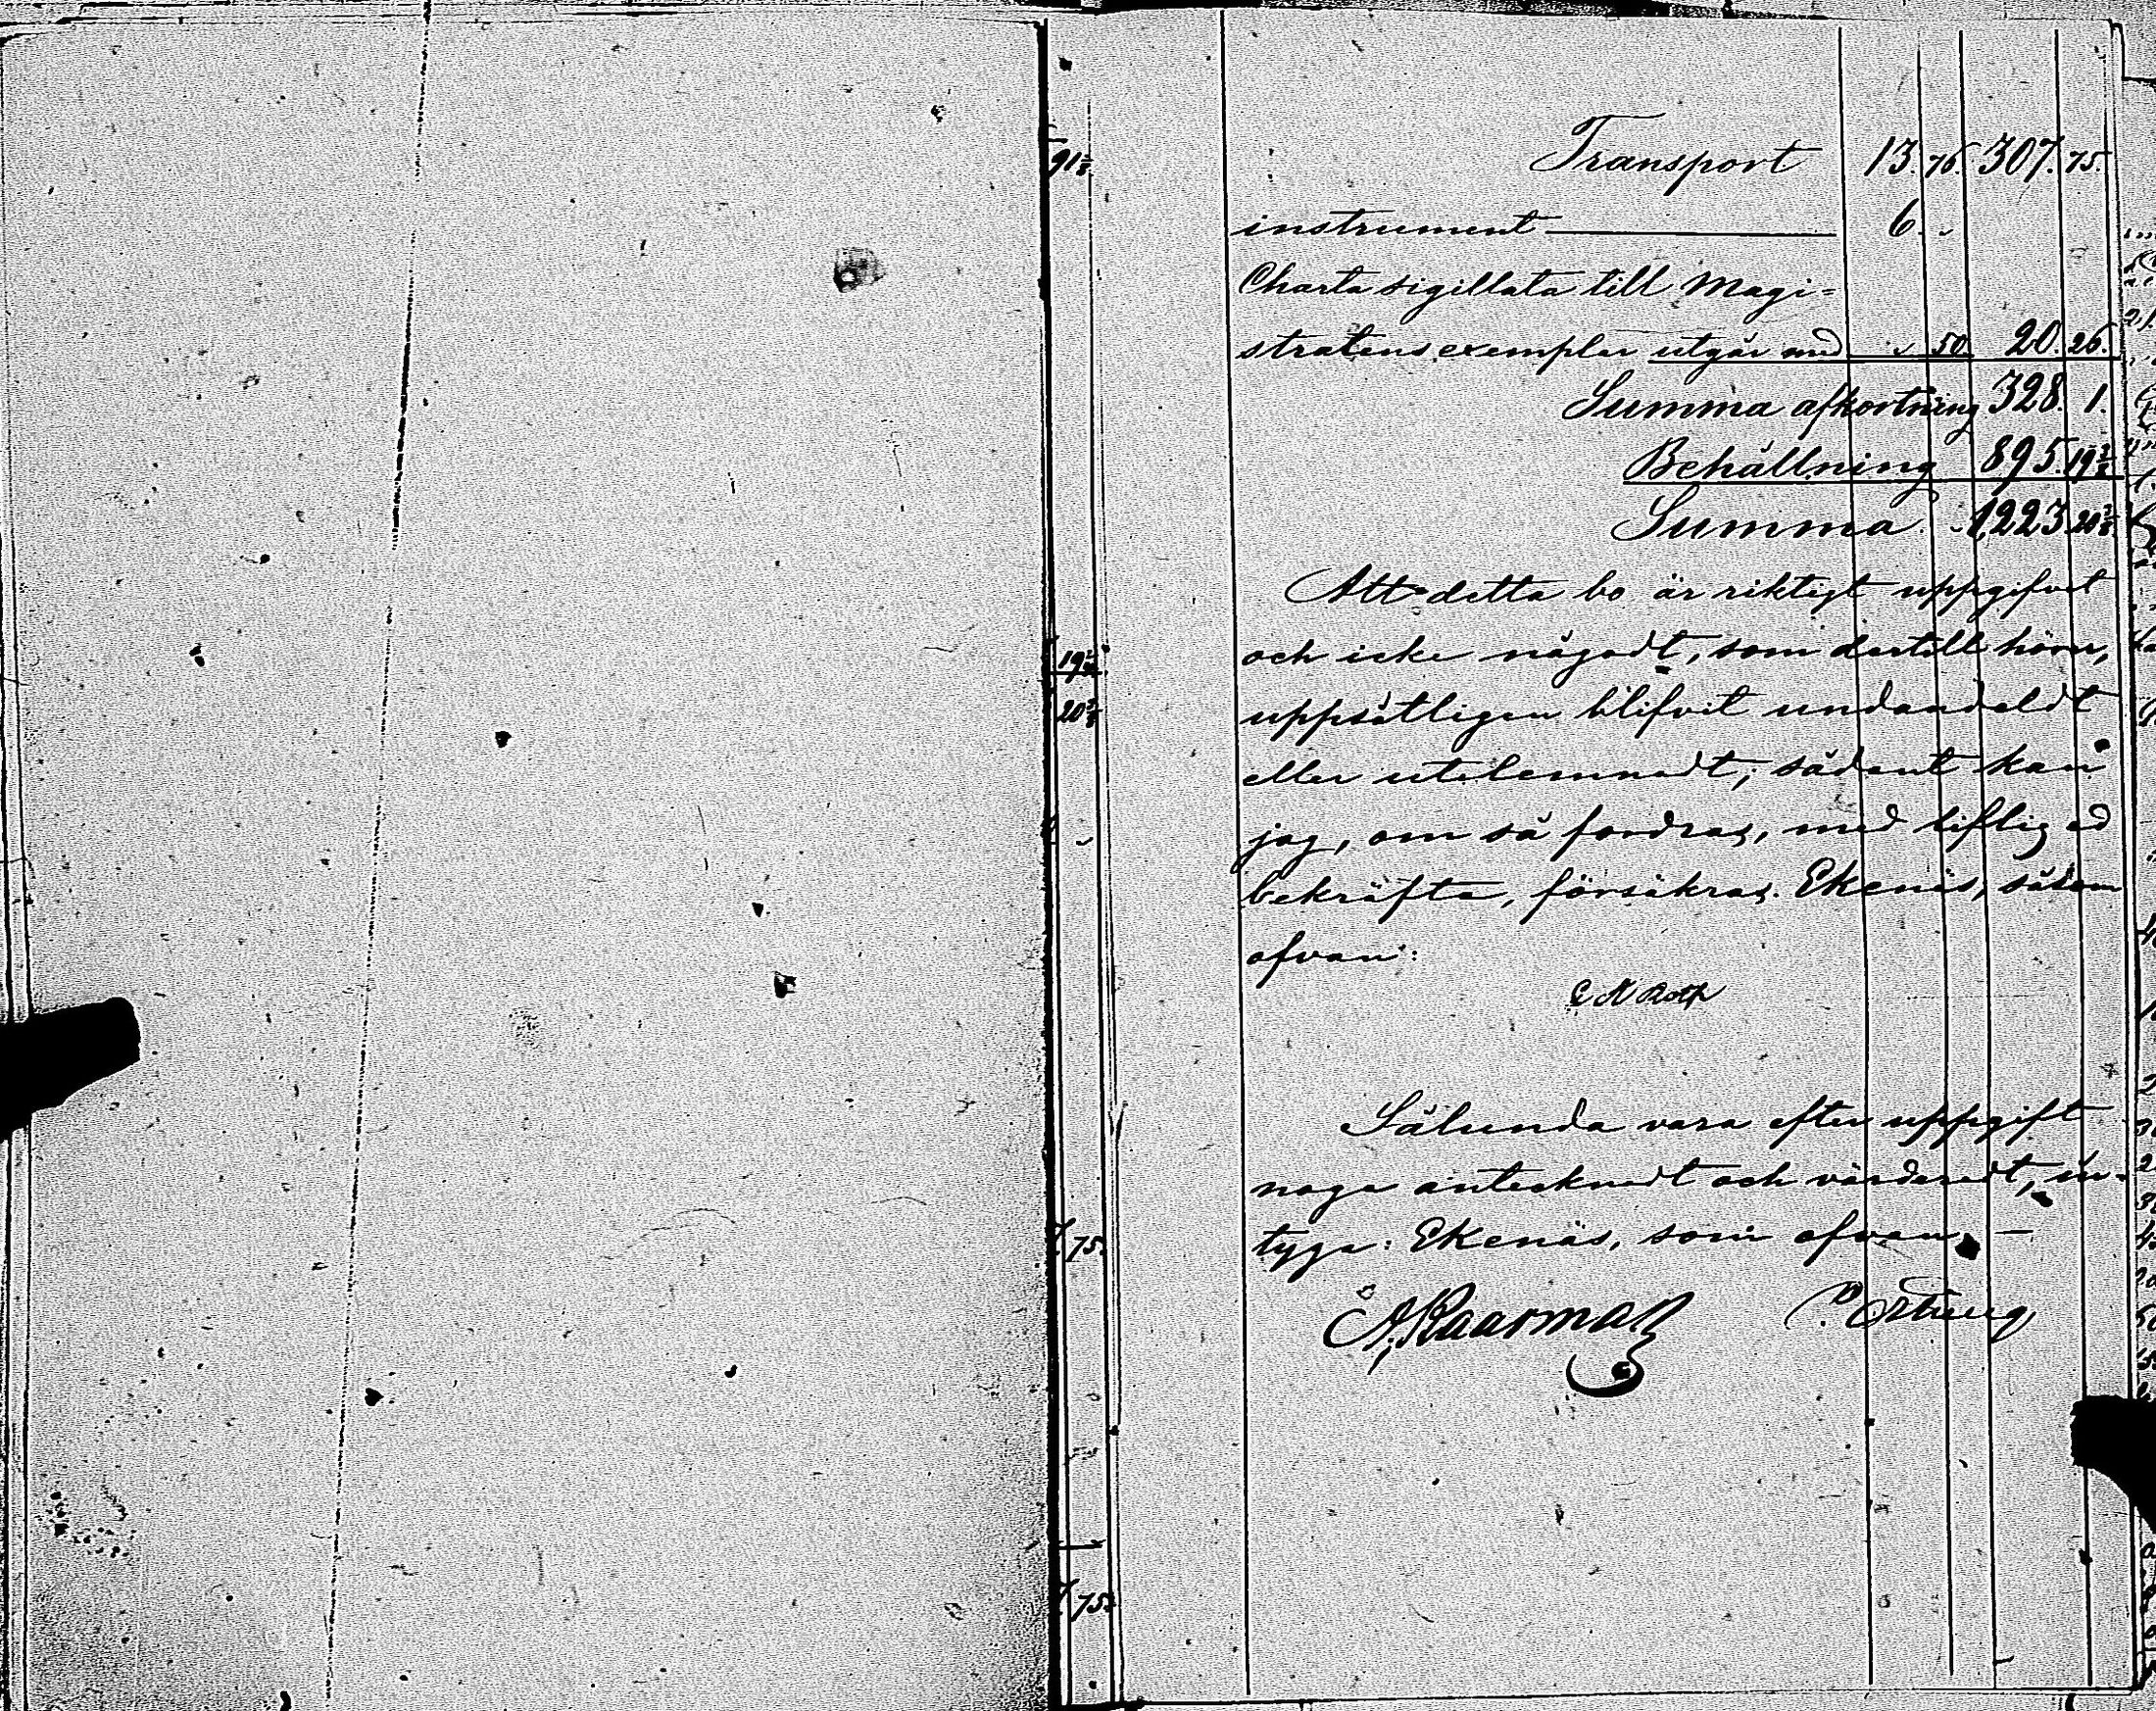 91½
19½
20½
75.
75.
Transport 13. 76. 307. 75.
instrument 6. "
Charta sigillata till Magi=
stratens exemplar utgår med " 50. 20. 26.
Summa afkortning 328. 1.
Behållning 895. 19½
Summa 1,223. 20½
Att detta bo är riktigt uppgifvet
och icke någodt, som dertill hörer,
uppsåtligen blifvit undandoldt
eller utelemnadt; sådant kan
jag, om så fordras, med liflig ed
bekräfta, försäkras. Ekenäs, såsom
ofvan:
C N Roth
Sålunda vara efter uppgift
noga antecknadt och värderadt, in-
tyga: Ekenäs, som ofvan —